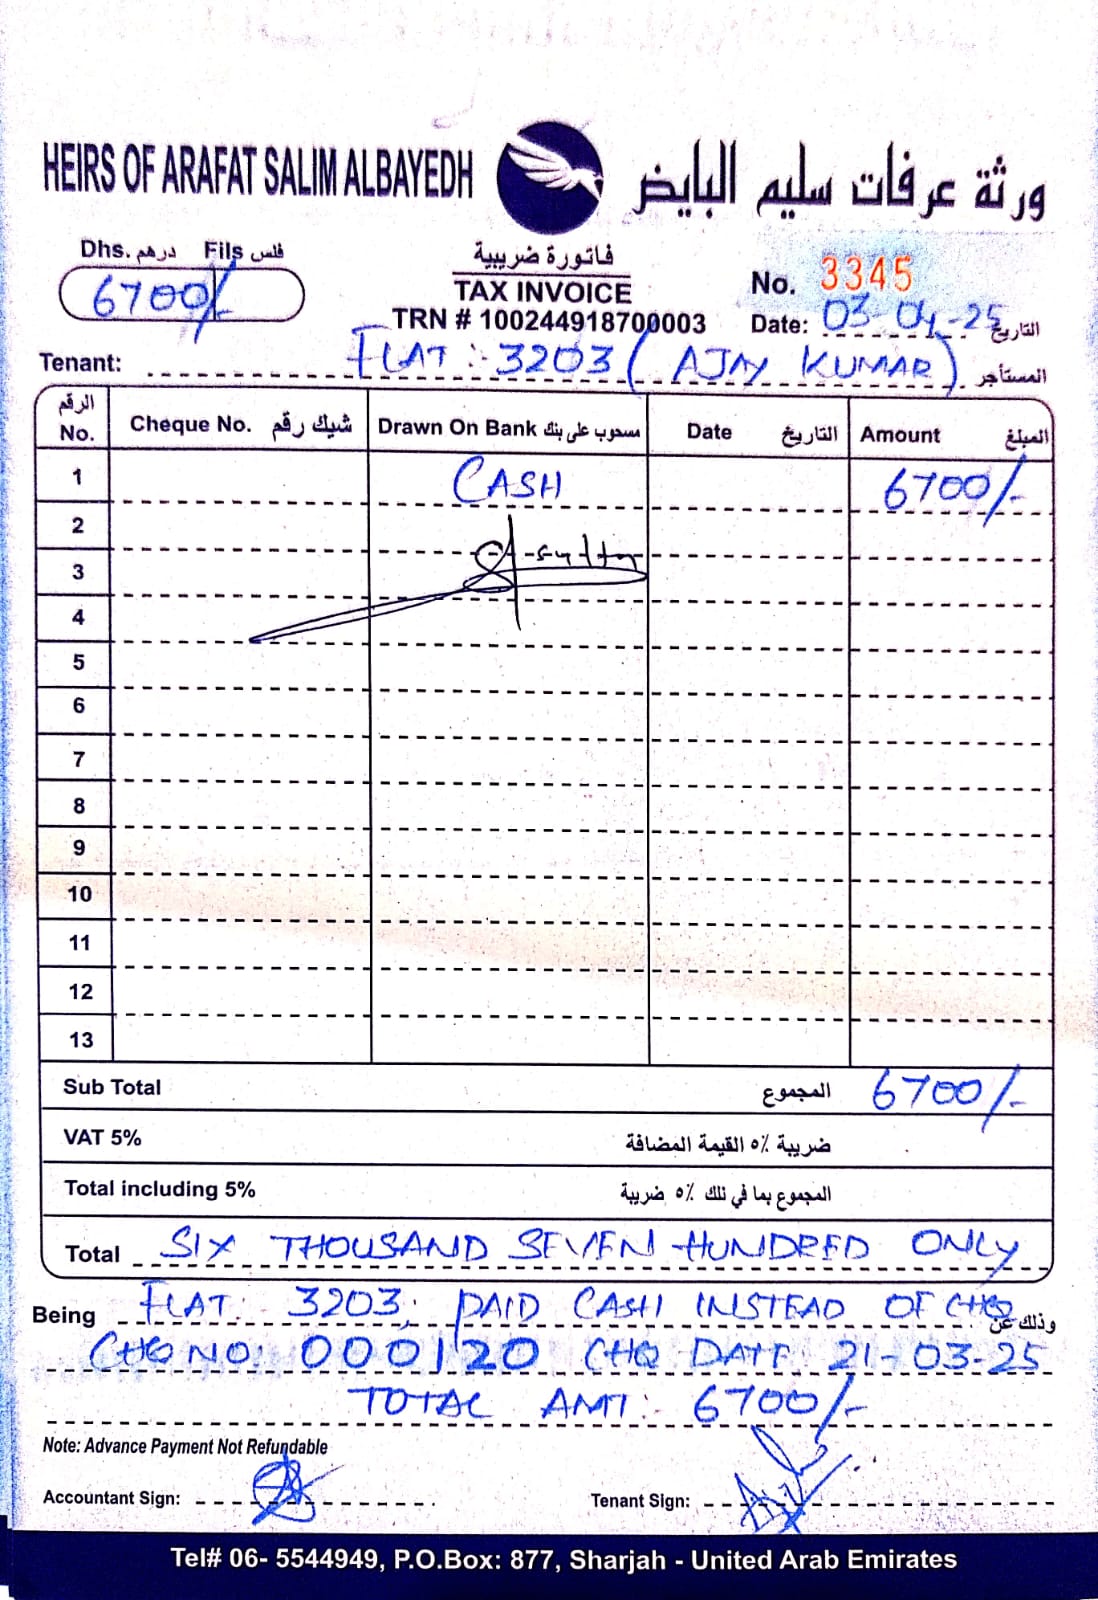 HEIRS OF ARAFAT SALIM ALBAYEDH ورثة عرفات سليم البايض
Dhs. درهم Fils فلس
6700/-
فاتورة ضريبية
TAX INVOICE
TRN # 100244918700003
No. 3345
Date: 03-04-25 التاريخ
Tenant: FLAT :- 3203 ( AJAY KUMAR ) المستأجر
الرقم No. Cheque No. شيك رقم Drawn On Bank مسحوب على بنك Date التاريخ Amount المبلغ
1 CASH 6700/-
2
3
4
5
6
7
8
9
10
11
12
13
Sub Total المجموع 6700/-
VAT 5% ضريبة ٥٪ القيمة المضافة
Total including 5% المجموع بما في ذلك ٥٪ ضريبة
Total SIX THOUSAND SEVEN HUNDRED ONLY
Being FLAT: 3203; PAID CASH INSTEAD OF CHQ وذلك عن
CHQ NO: 000120 CHQ DATE 21-03-25
TOTAL AMT:- 6700/-
Note: Advance Payment Not Refundable
Accountant Sign:
Tenant Sign:
Tel# 06- 5544949, P.O.Box: 877, Sharjah - United Arab Emirates